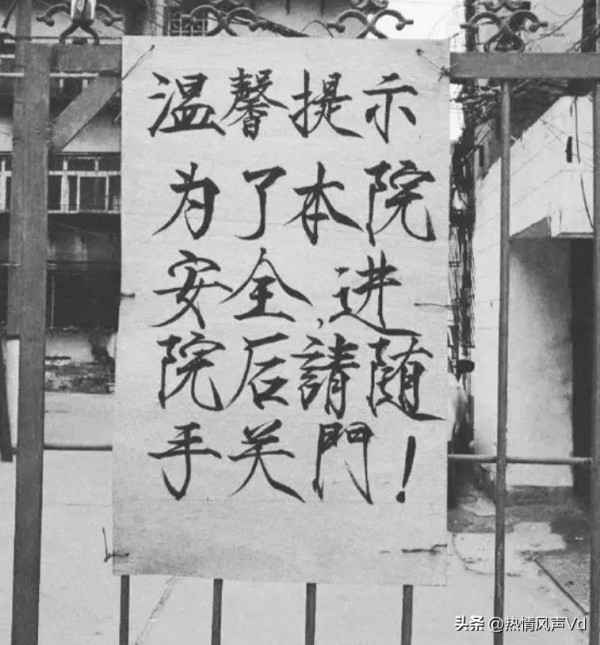 温馨提示
为了本院
安全,进
院后請随
手关門!
头条 @热情风声Vd